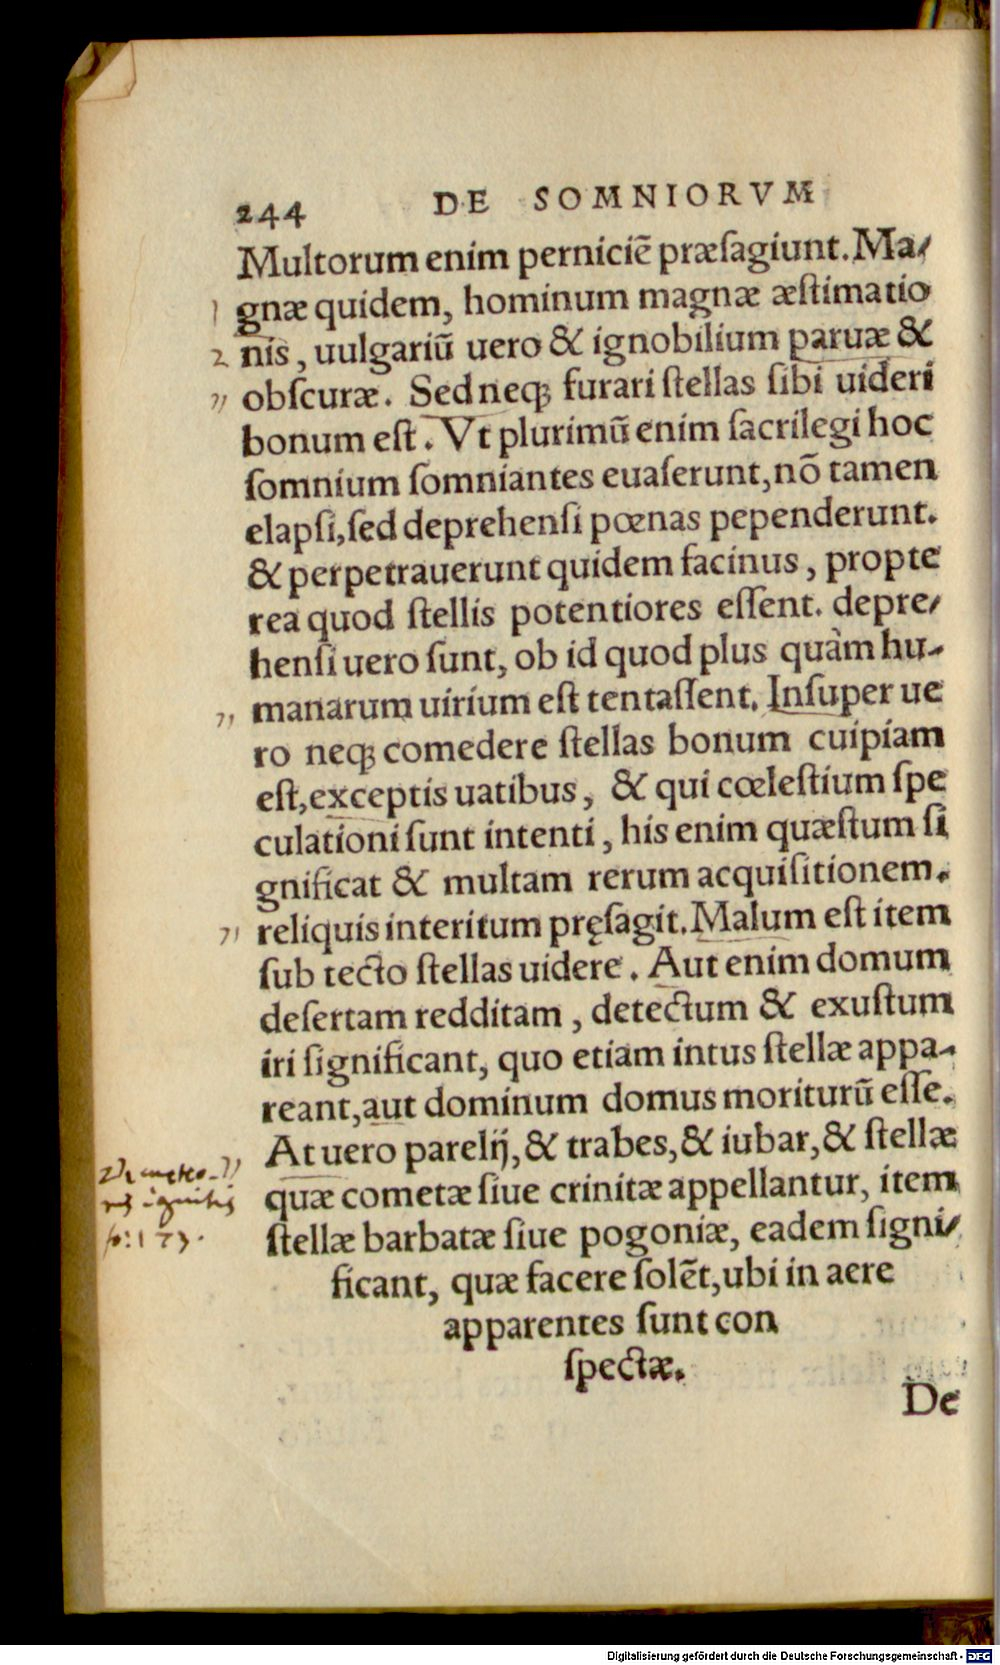 244 DE SOMNIORVM
Multorum enim perniciē præsagiunt. Ma/
gnæ quidem, hominum magnæ æstimatio
nis, uulgariū uero & ignobilium paruæ &
obscuræ. Sed neqꝫ furari stellas sibi uideri
bonum est. Vt plurimū enim sacrilegi hoc
somnium somniantes euaserunt, nō tamen
elapsi, sed deprehensi pœnas pependerunt.
& perpetrauerunt quidem facinus, propte
rea quod stellis potentiores essent. depre/
hensi uero sunt, ob id quod plus quàm hu-
manarum uirium est tentassent. Insuper ue
ro neqꝫ comedere stellas bonum cuipiam
est, exceptis uatibus, & qui cœlestium spe
culationi sunt intenti, his enim quæstum si
gnificat & multam rerum acquisitionem.
reliquis interitum pręsagit. Malum est item
sub tecto stellas uidere. Aut enim domum
desertam redditam, detectum & exustum
iri significant, quo etiam intus stellæ appa-
reant, aut dominum domus moriturū esse.
At uero parelij, & trabes, & iubar, & stellæ
quæ cometæ siue crinitæ appellantur, item
stellæ barbatæ siue pogoniæ, eadem signi/
ficant, quæ facere solēt, ubi in aere
apparentes sunt con
spectæ.
De
1
2
ignitis
Digitalisierung gefördert durch die Deutsche Forschungsgemeinschaft - DFG